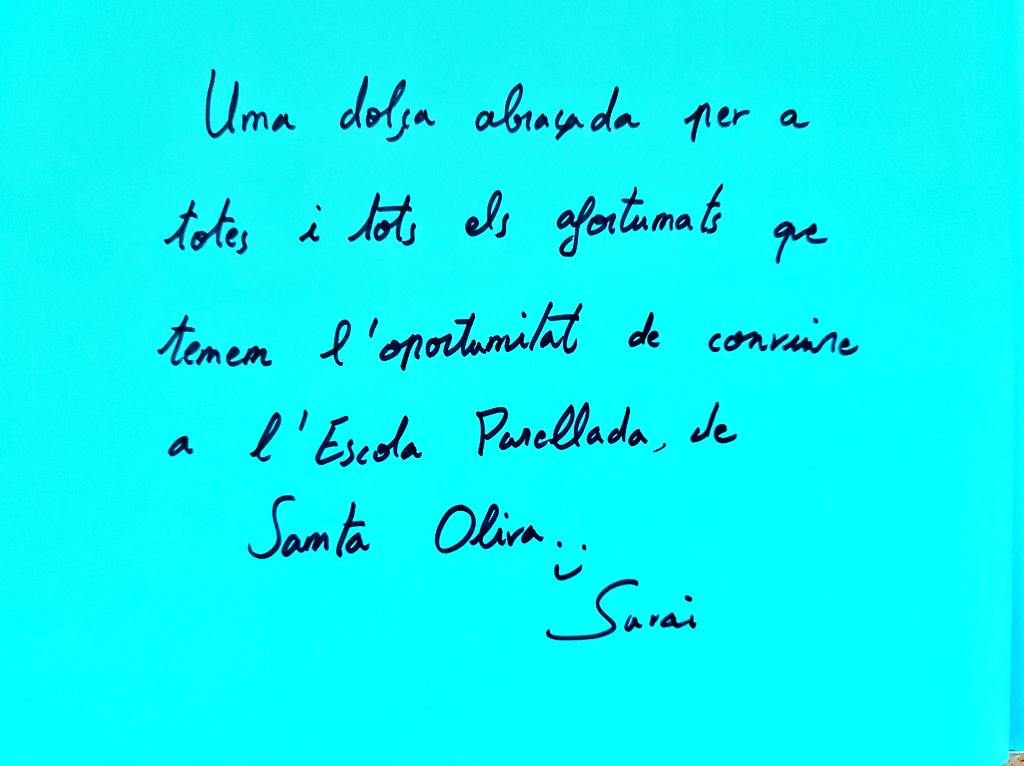 Una dolça abraçada per a
totes i tots els afortunats que
tenem l'oportunitat de conviure
a l'Escola Parellada, de
Santa Oliva :)
Sarai